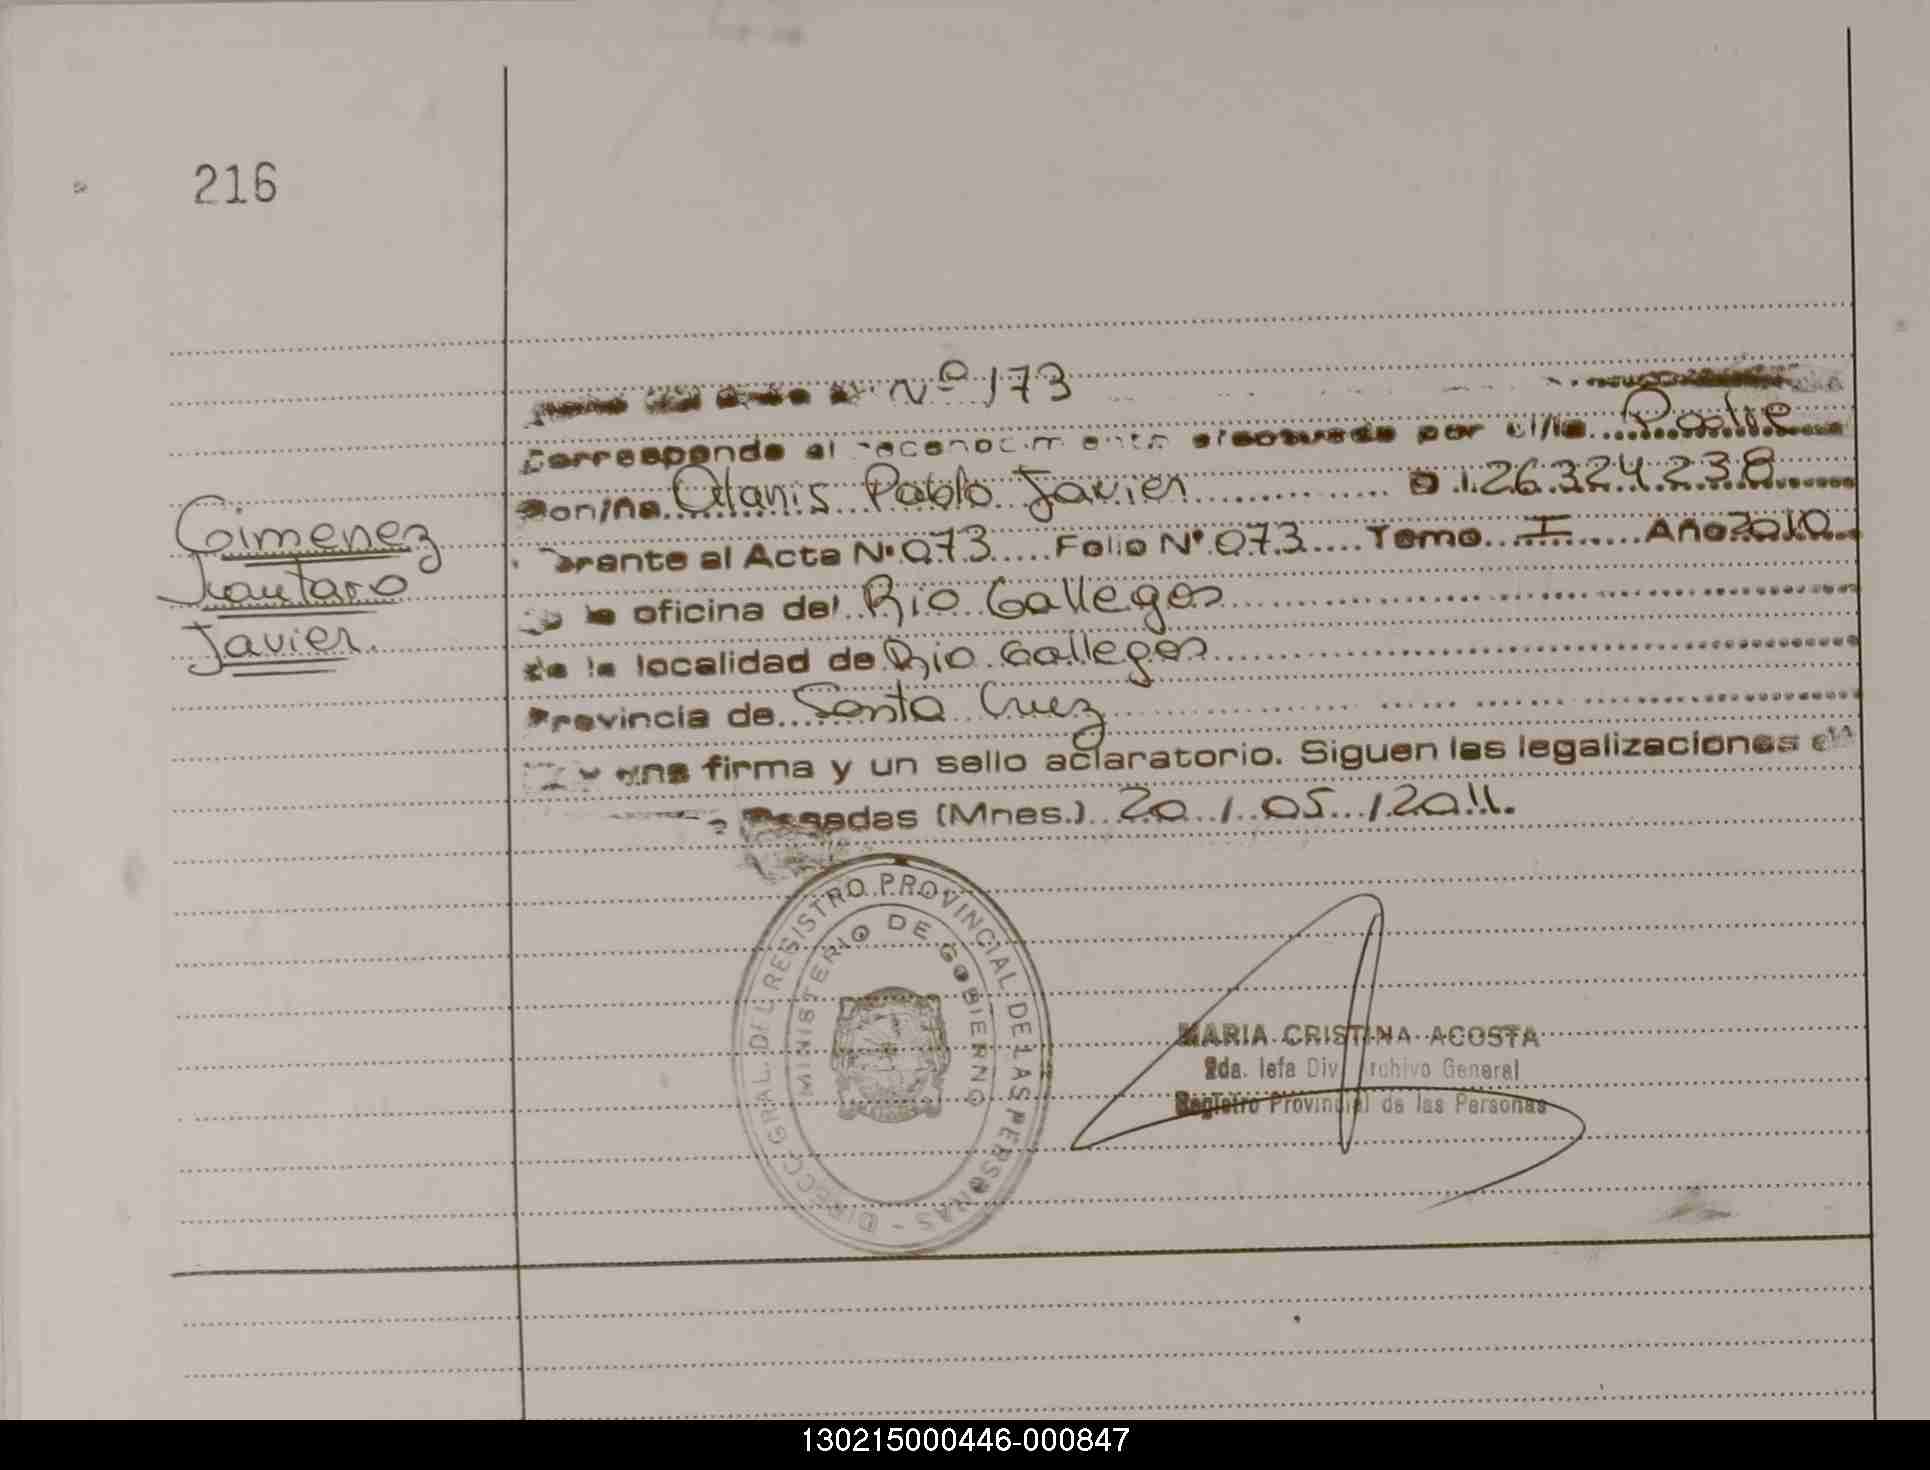 216
Nº 173
Corresponde al reconocimiento efectuado por el/la Padre
Don/ña Alanis Pablo Javier D.I. 26.324.238
Gimenez
Lautaro
Javier.
orante al Acta Nº 073 Folio Nº 073 Tomo I Año 2010
la oficina del Rio Gallegos
de la localidad de Rio Gallegos
Provincia de Santa Cruz
y una firma y un sello aclaratorio. Siguen las legalizaciones
Posadas (Mnes.) 20 / 05 / 2011.
DIRECC GRAL. DEL REGISTRO PROVINCIAL DE LAS PERSONAS -
MINISTERIO DE GOBIERNO
MARIA CRISTINA ACOSTA
2da. Jefa Div. Archivo General
Registro Provincial de las Personas
130215000446-000847